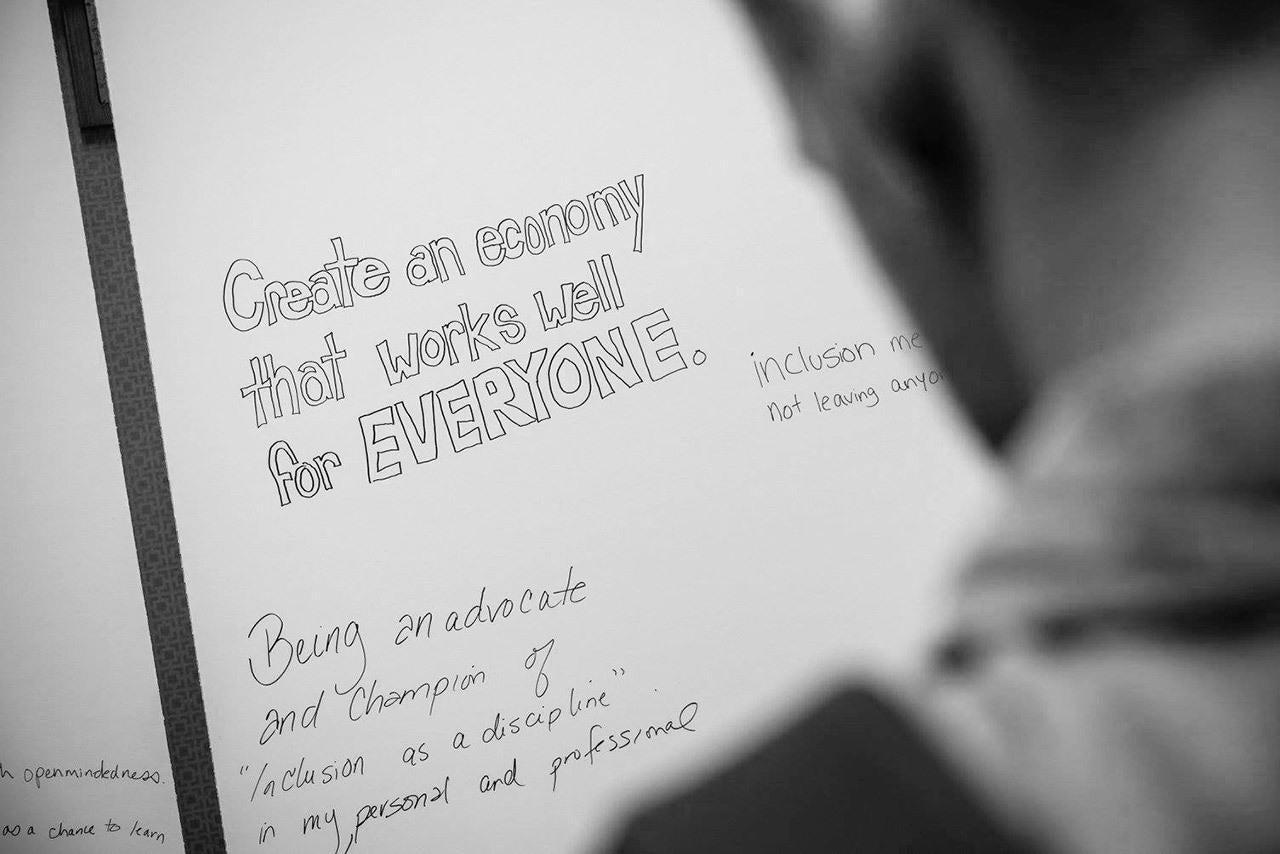 Create an economy
that works well
for EVERYONE.
inclusion
not leaving
Being an advocate
and Champion of
"Inclusion as a discipline"
in my personal and professional
openmindedness.
as a chance to learn